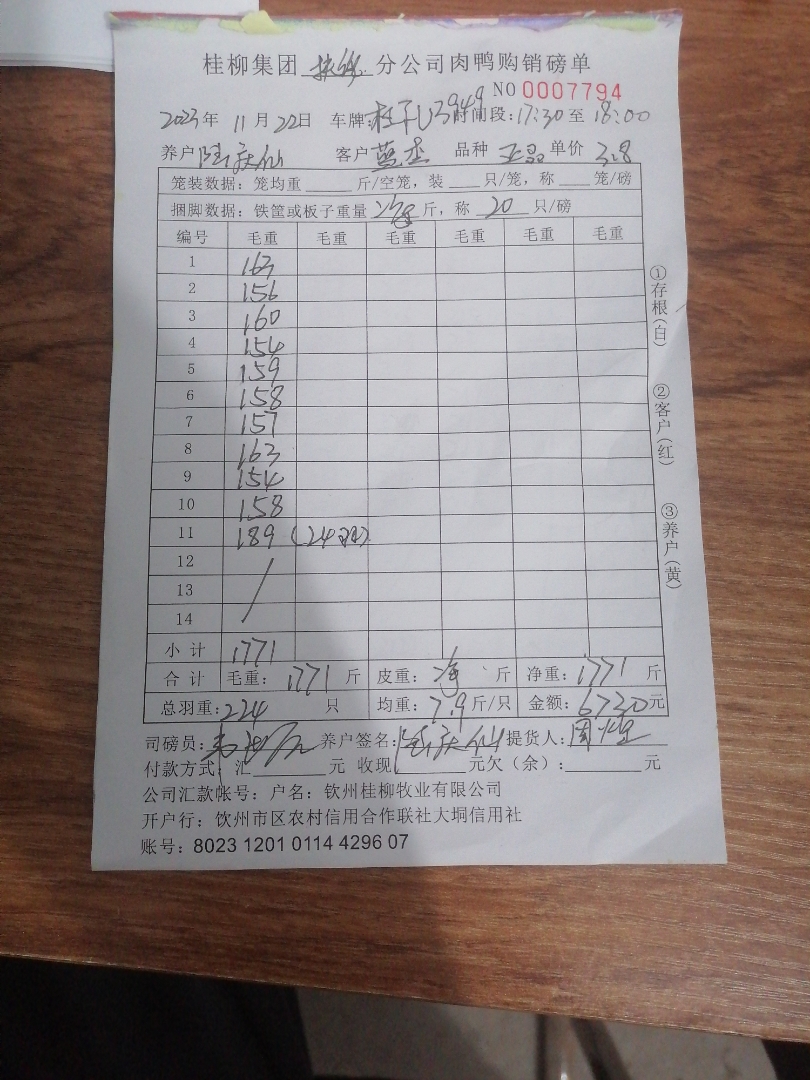 桂柳集团 扶绥 分公司肉鸭购销磅单
NO 0007794
2023年 11月22日 车牌:桂 时间段:17:30至18:00
养户 陆庆仙 客户 蓝 品种 单价 3.8
笼装数据:笼均重 斤/空笼,装 只/笼,称 笼/磅
捆脚数据:铁筐或板子重量 净 斤,称 20 只/磅
编号 毛重 毛重 毛重 毛重 毛重
1 163
2 156
3 160
4 154
5 159
6 158
7 157
8 163
9 154
10 158
11 189 (24羽)
12
13
14
小计 1771
合计 毛重:1771 斤 皮重:净 斤 净重:1771 斤
总羽重:224 只 均重:7.9斤/只 金额:6730元
司磅员: 养户签名:陆庆仙 提货人:周
付款方式:汇 元 收现 元欠(余): 元
公司汇款帐号:户名:钦州桂柳牧业有限公司
开户行:钦州市区农村信用合作联社大垌信用社
账号:8023 1201 0114 4296 07
①存根(白)
②客户(红)
③养户(黄)